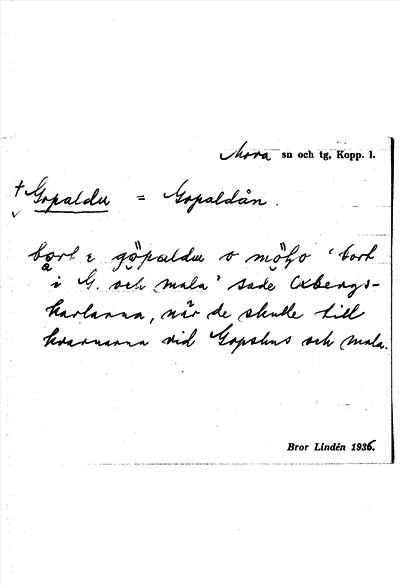 Mora sn och tg, Kopp. l.
† Gopaldu = Gopaldån.
bort i göpaldu o möla 'bort
i G. och mala' sade Oxbergs-
karlarna, när de skulle till
kvarnarna vid Gopshus och mala.
Bror Lindén 1936.